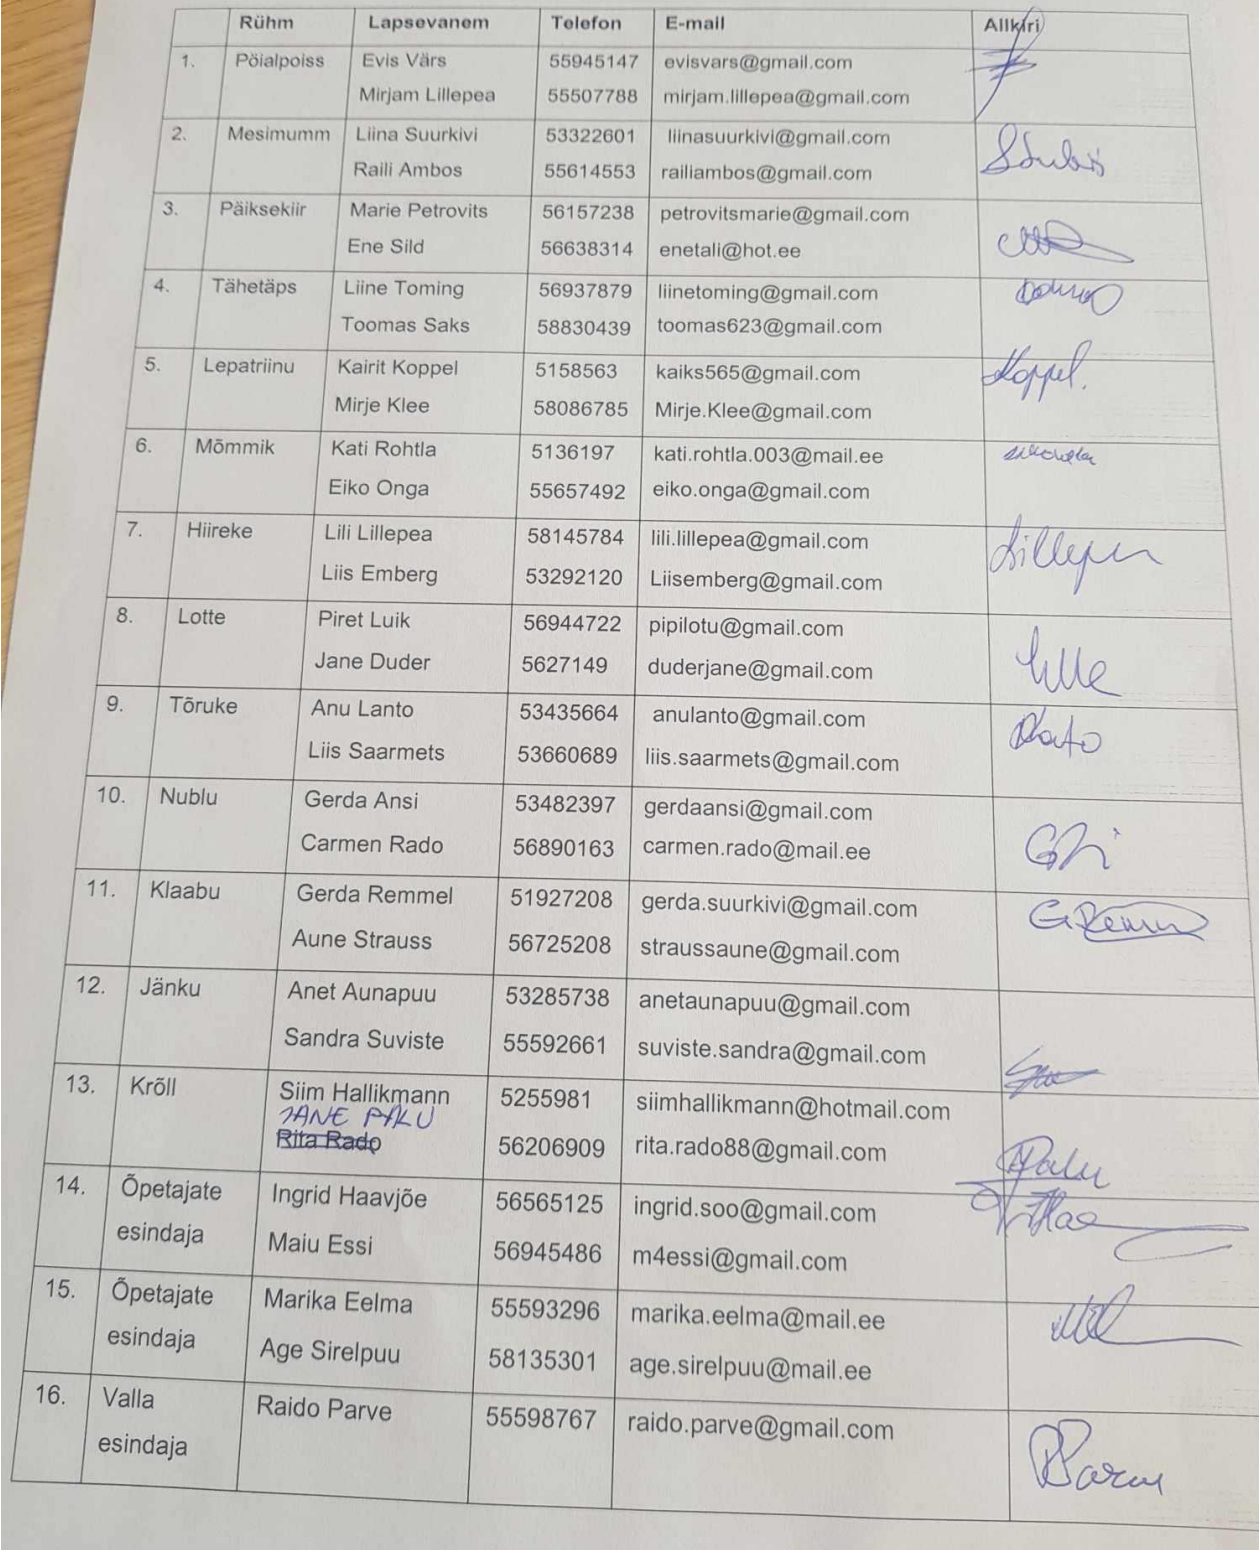 Rühm Lapsevanem Telefon E-mail Allkiri
1. Pöialpoiss Evis Värs 55945147 evisvars@gmail.com
Mirjam Lillepea 55507788 mirjam.lillepea@gmail.com
2. Mesimumm Liina Suurkivi 53322601 liinasuurkivi@gmail.com
Raili Ambos 55614553 railiambos@gmail.com
3. Päiksekiir Marie Petrovits 56157238 petrovitsmarie@gmail.com
Ene Sild 56638314 enetali@hot.ee
4. Tähetäps Liine Toming 56937879 liinetoming@gmail.com
Toomas Saks 58830439 toomas623@gmail.com
5. Lepatriinu Kairit Koppel 5158563 kaiks565@gmail.com Koppel.
Mirje Klee 58086785 Mirje.Klee@gmail.com
6. Mõmmik Kati Rohtla 5136197 kati.rohtla.003@mail.ee
Eiko Onga 55657492 eiko.onga@gmail.com
7. Hiireke Lili Lillepea 58145784 lili.lillepea@gmail.com
Liis Emberg 53292120 Liisemberg@gmail.com
8. Lotte Piret Luik 56944722 pipilotu@gmail.com
Jane Duder 5627149 duderjane@gmail.com
9. Tõruke Anu Lanto 53435664 anulanto@gmail.com
Liis Saarmets 53660689 liis.saarmets@gmail.com
10. Nublu Gerda Ansi 53482397 gerdaansi@gmail.com
Carmen Rado 56890163 carmen.rado@mail.ee
11. Klaabu Gerda Remmel 51927208 gerda.suurkivi@gmail.com
Aune Strauss 56725208 straussaune@gmail.com
12. Jänku Anet Aunapuu 53285738 anetaunapuu@gmail.com
Sandra Suviste 55592661 suviste.sandra@gmail.com
13. Krõll Siim Hallikmann 5255981 siimhallikmann@hotmail.com
JANE PALU
Rita Rado 56206909 rita.rado88@gmail.com
14. Õpetajate Ingrid Haavjõe 56565125 ingrid.soo@gmail.com
esindaja Maiu Essi 56945486 m4essi@gmail.com
15. Õpetajate Marika Eelma 55593296 marika.eelma@mail.ee
esindaja Age Sirelpuu 58135301 age.sirelpuu@mail.ee
16. Valla Raido Parve 55598767 raido.parve@gmail.com
esindaja